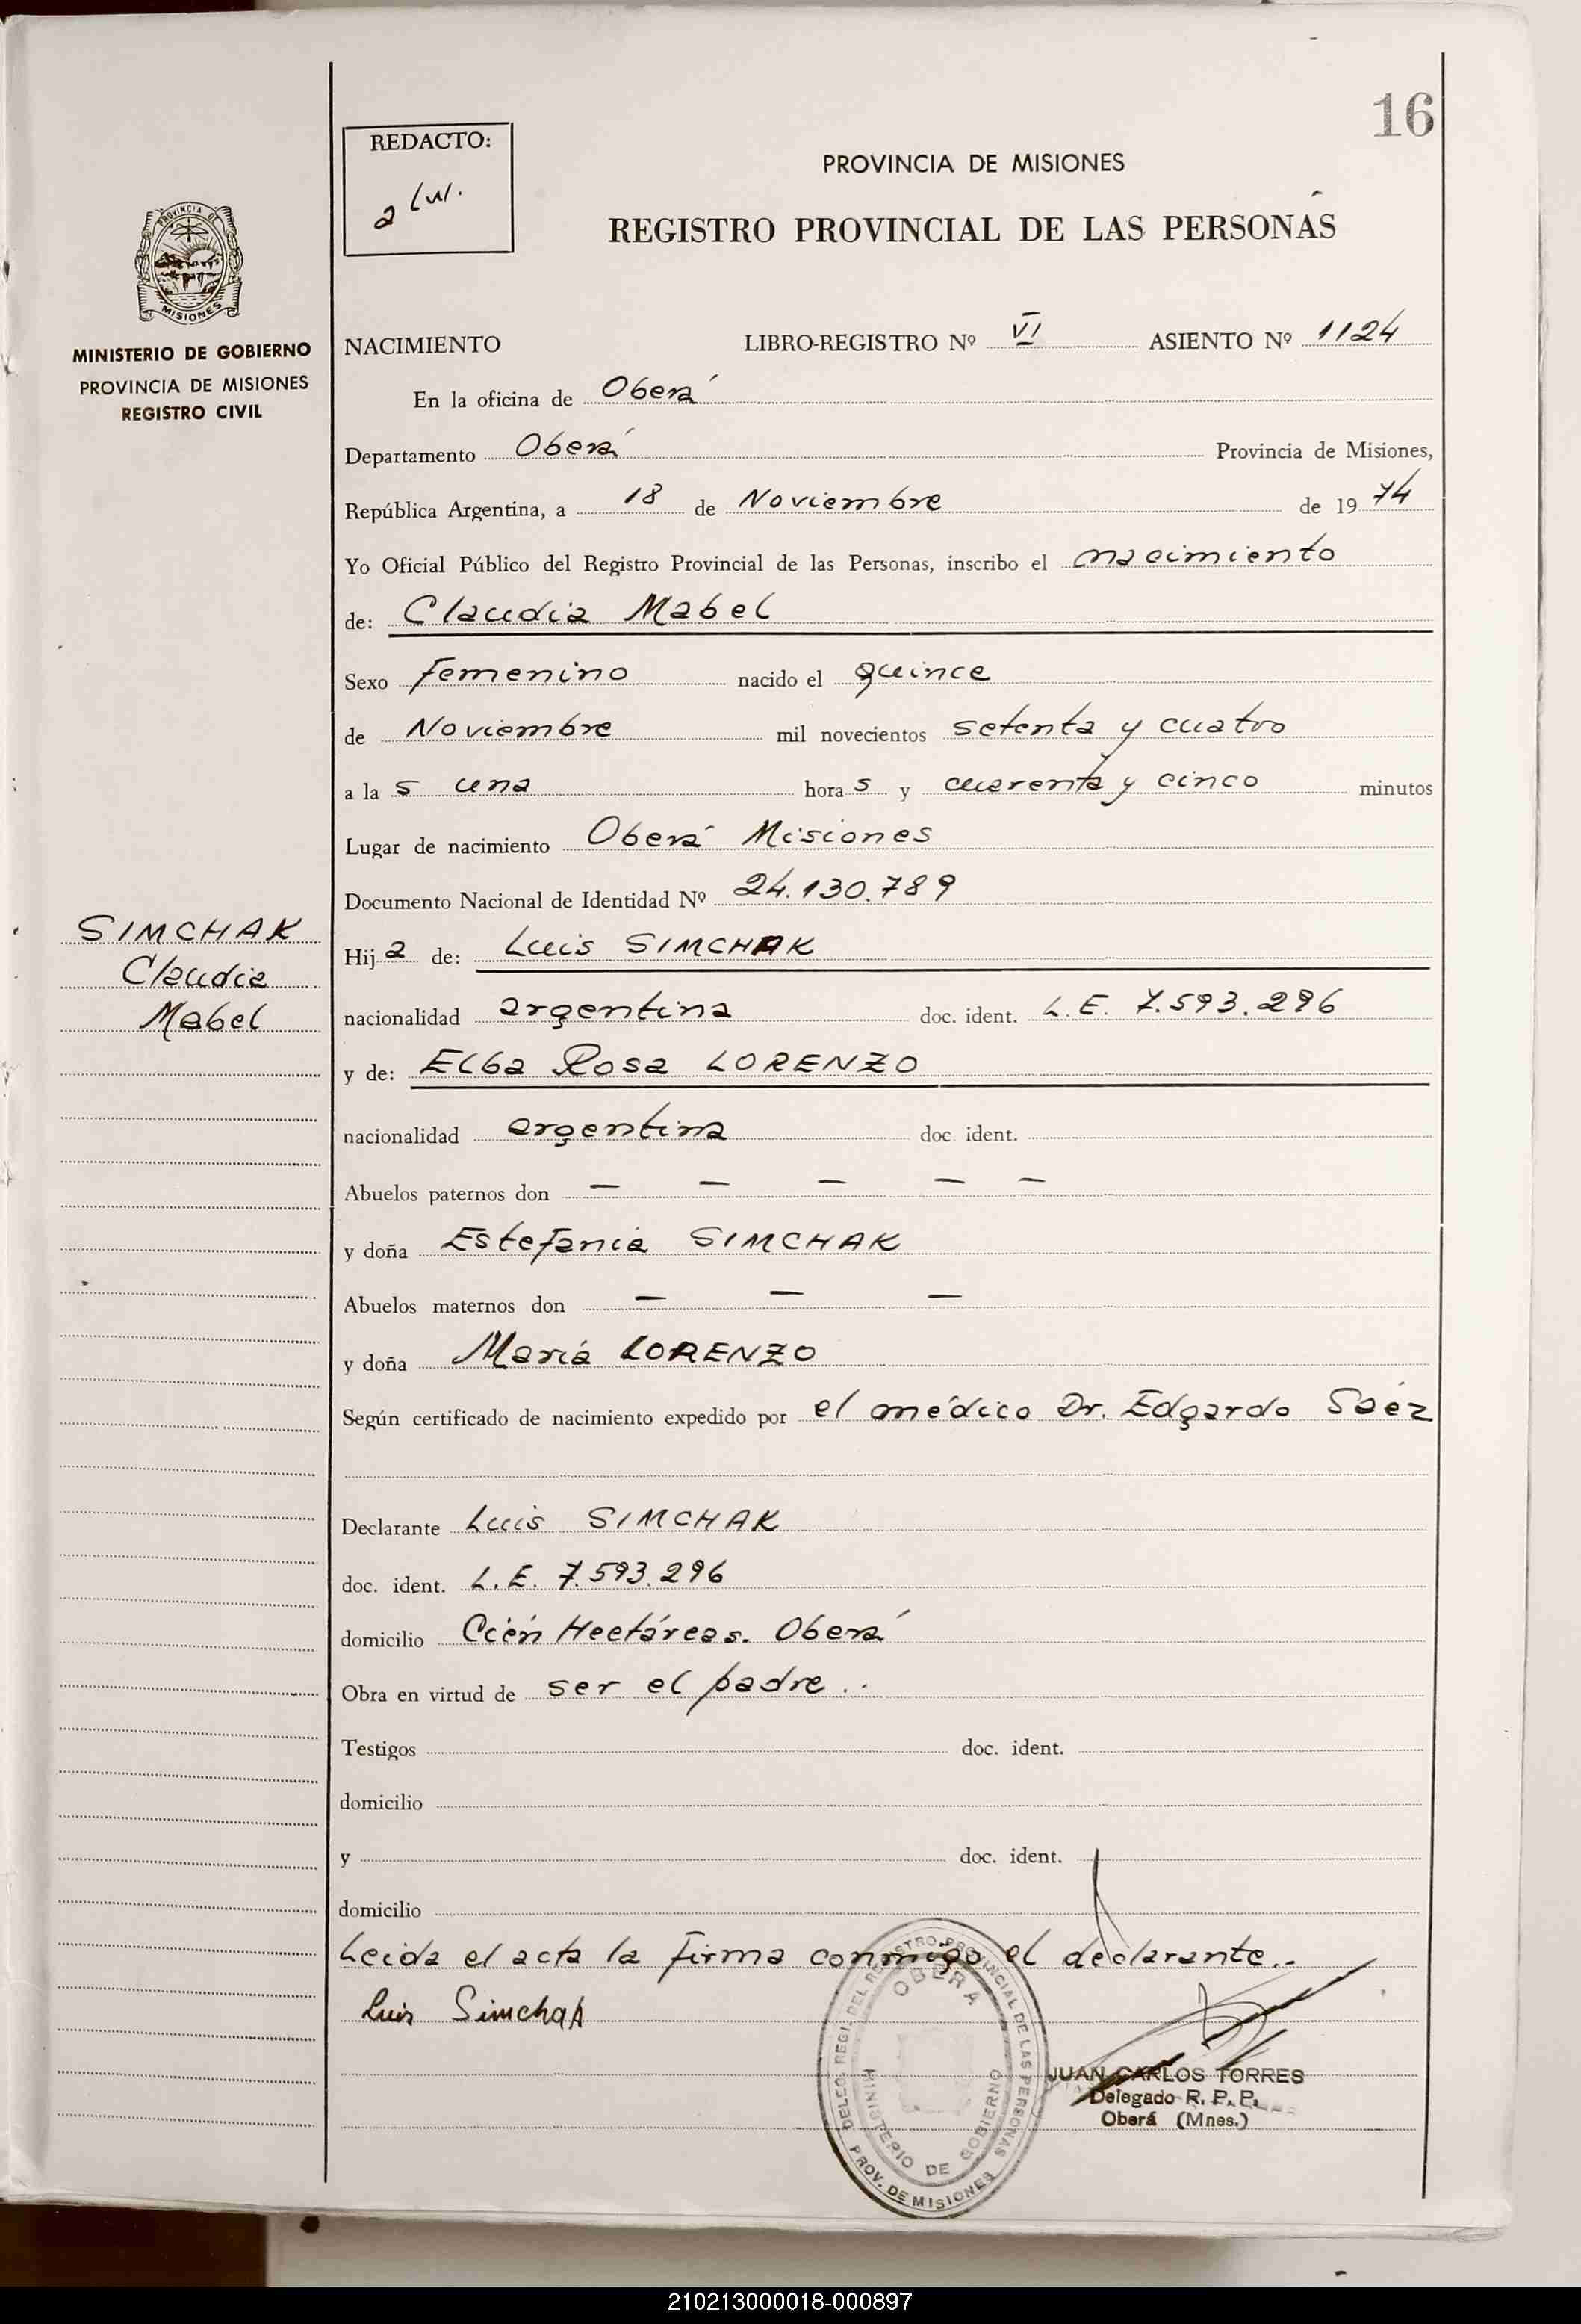 16
REDACTO:
PROVINCIA DE MISIONES
REGISTRO PROVINCIAL DE LAS PERSONAS
PROVINCIA DE
MISIONES
MINISTERIO DE GOBIERNO
PROVINCIA DE MISIONES
REGISTRO CIVIL
NACIMIENTO LIBRO-REGISTRO Nº VI ASIENTO Nº 1124
En la oficina de Oberá
Departamento Oberá Provincia de Misiones,
República Argentina, a 18 de Noviembre de 1974
Yo Oficial Público del Registro Provincial de las Personas, inscribo el nacimiento
de: Claudia Mabel
Sexo Femenino nacido el quince
de Noviembre mil novecientos setenta y cuatro
a la s una hora s y cuarenta y cinco minutos
Lugar de nacimiento Oberá Misiones
Documento Nacional de Identidad Nº 24.130.789
SIMCHAK
Claudia
Mabel
Hij a de: Luis SIMCHAK
nacionalidad argentina doc. ident. L.E. 7.593.296
y de: Elba Rosa LORENZO
nacionalidad argentina doc. ident.
Abuelos paternos don — — — — —
y doña Estefania SIMCHAK
Abuelos maternos don — — —
y doña María LORENZO
Según certificado de nacimiento expedido por el médico Dr. Edgardo Saéz
Declarante Luis SIMCHAK
doc. ident. L.E. 7.593.296
domicilio Cción Hectáreas. Oberá
Obra en virtud de ser el padre..
Testigos doc. ident.
domicilio
y doc. ident.
domicilio
Leida el acta la firma conmigo el declarante..
Luis Simchak
DELEG. REGI. DEL REGISTRO PROVINCIAL DE LAS PERSONAS
OBERA
MINISTERIO DE GOBIERNO
PROV. DE MISIONES
JUAN CARLOS TORRES
Delegado R. P. P.
Oberá (Mnes.)
210213000018-000897